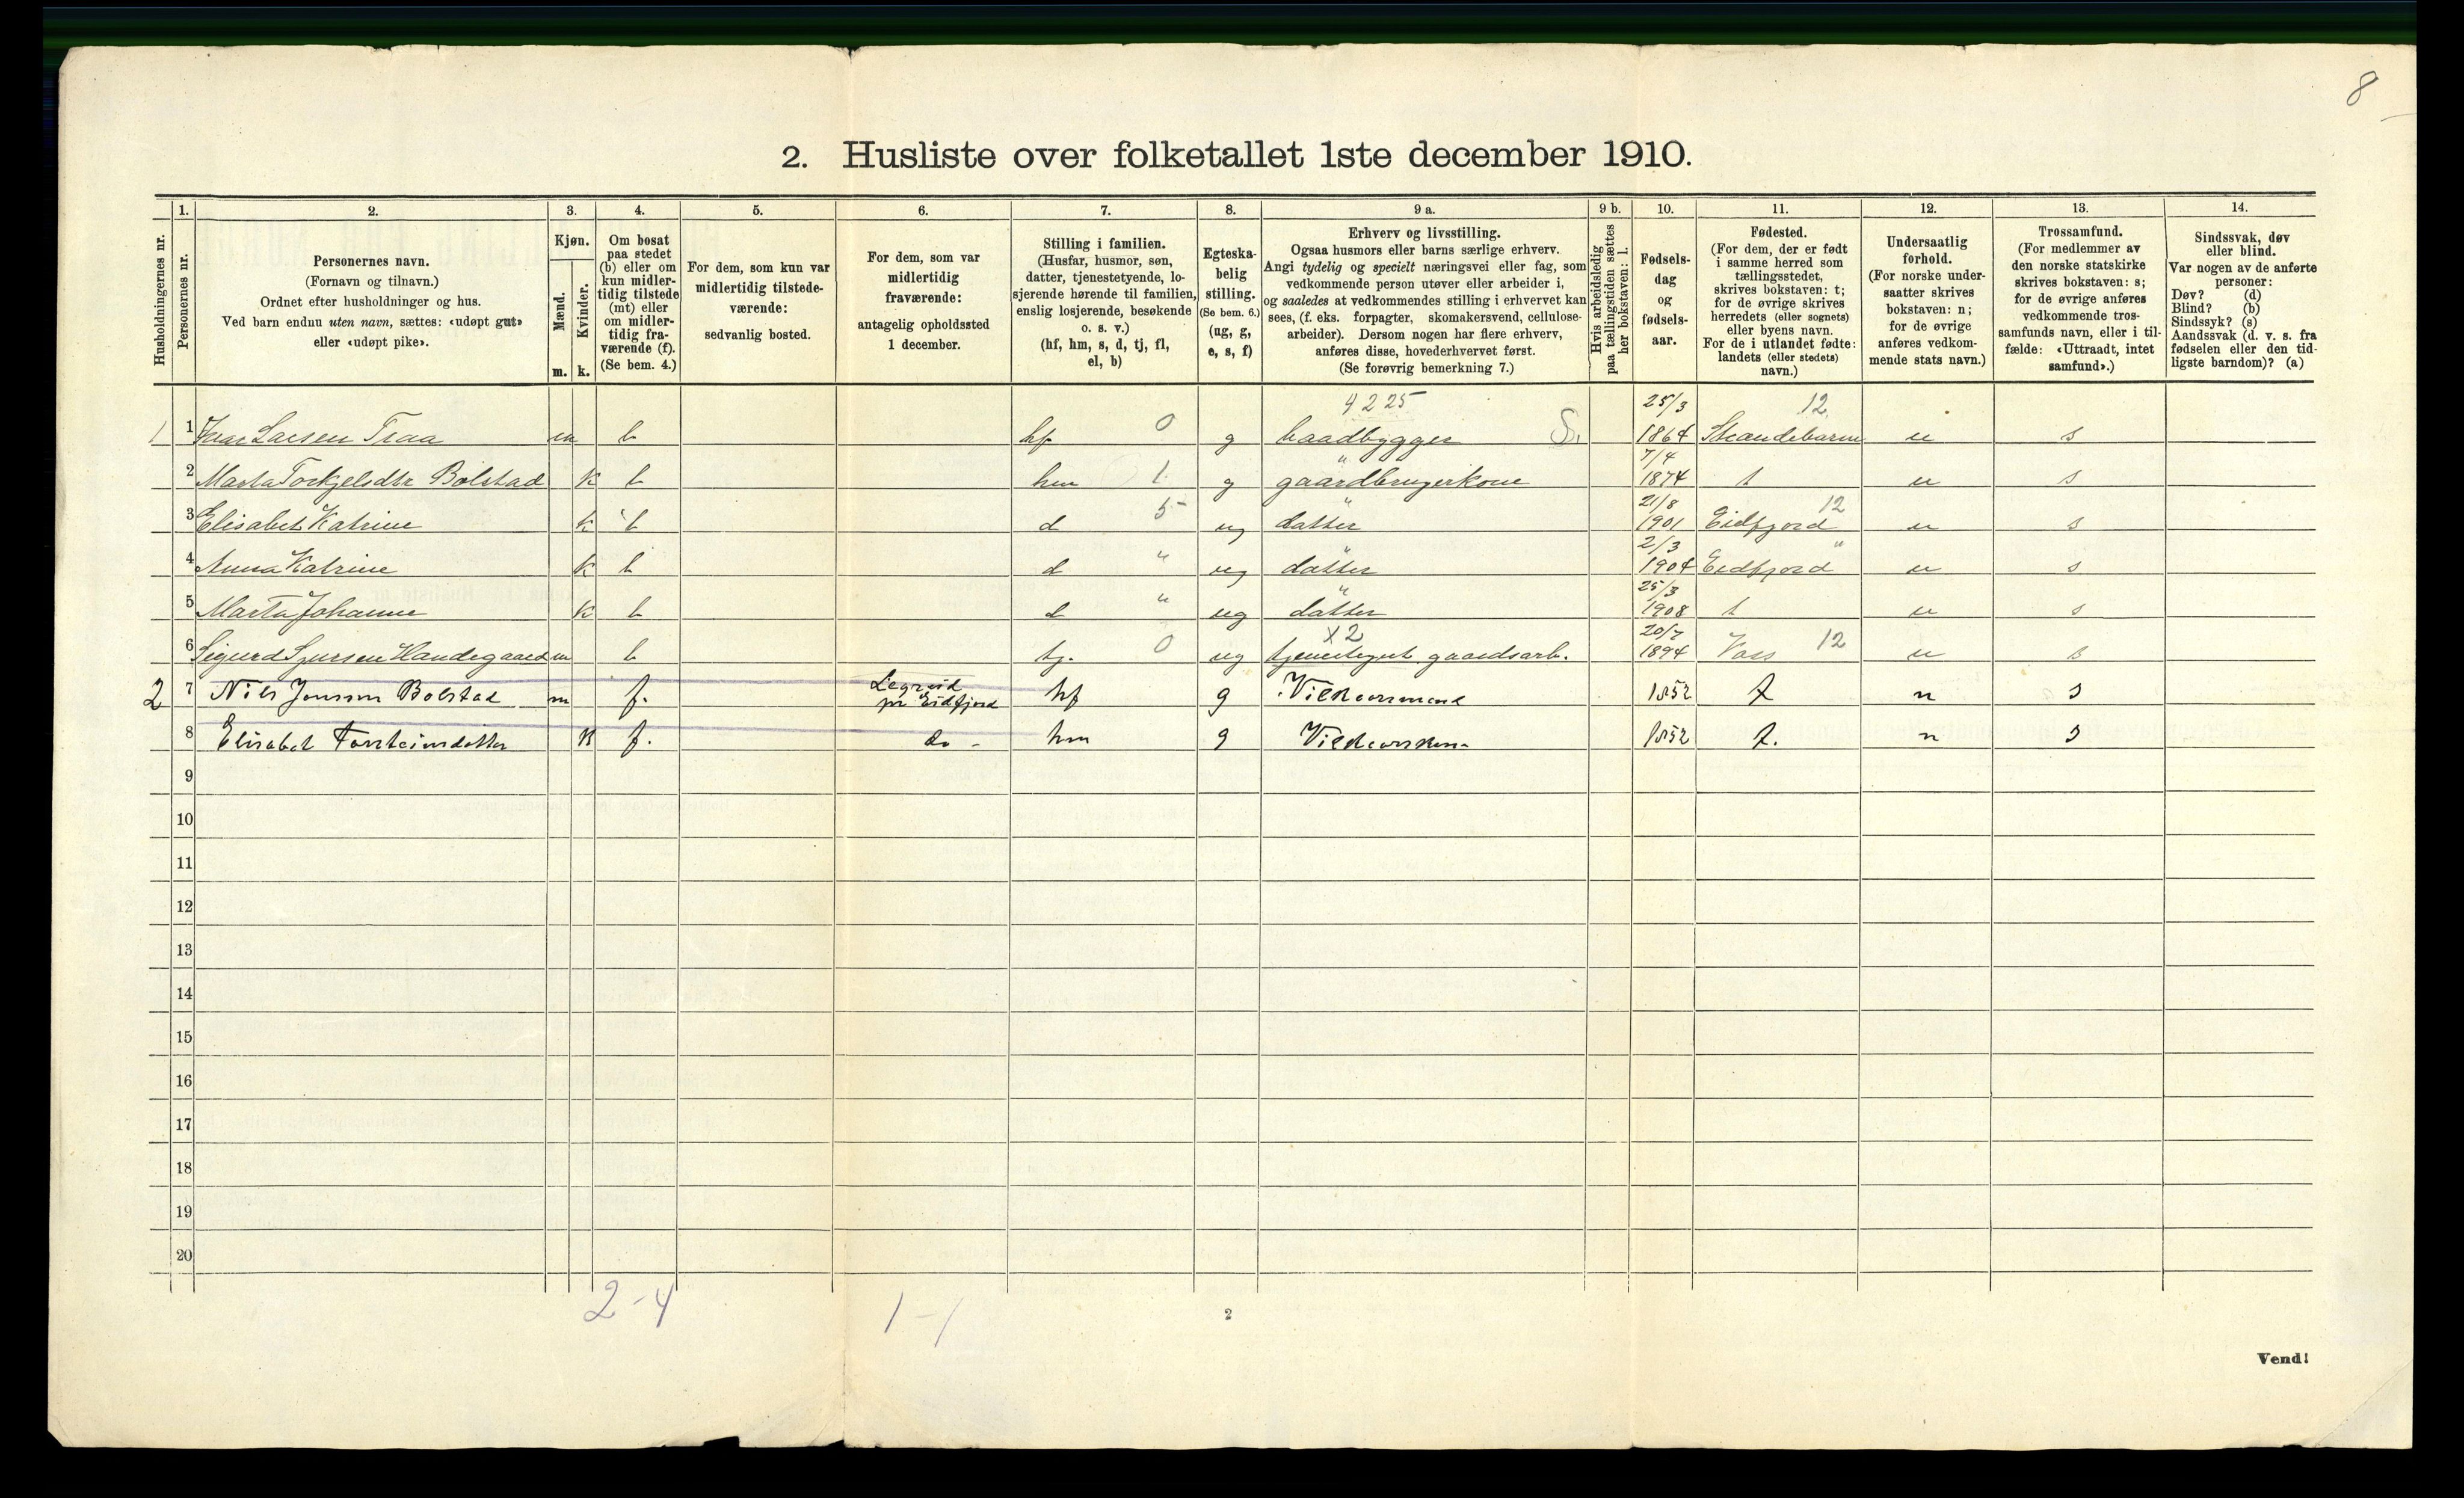 8
2. Husliste over folketallet 1ste december 1910.
Husholdningernes nr.
1. Personernes nr.
2. Personernes navn.
(Fornavn og tilnavn.)
Ordnet efter husholdninger og hus.
Ved barn endnu uten navn, sættes: «udøpt gut»
eller «udøpt pike».
3. Kjøn.
Mænd. m.
Kvinder. k.
4. Om bosat
paa stedet
(b) eller om
kun midler-
tidig tilstede
(mt) eller
om midler-
tidig fra-
værende (f).
(Se bem. 4.)
5. For dem, som kun var
midlertidig tilstede-
værende:
sedvanlig bosted.
6. For dem, som var
midlertidig
fraværende:
antagelig opholdssted
1 december.
7. Stilling i familien.
(Husfar, husmor, søn,
datter, tjenestetyende, lo-
sjerende hørende til familien,
enslig losjerende, besøkende
o. s. v.)
(hf, hm, s, d, tj, fl,
el, b)
8. Egteska-
belig
stilling.
(Se bem. 6.)
(ug, g,
e, s, f)
9 a. Erhverv og livsstilling.
Ogsaa husmors eller barns særlige erhverv.
Angi tydelig og specielt næringsvei eller fag, som
vedkommende person utøver eller arbeider i,
og saaledes at vedkommendes stilling i erhvervet kan
sees, (f. eks. forpagter, skomakersvend, cellulose-
arbeider). Dersom nogen har flere erhverv,
anføres disse, hovederhvervet først.
(Se forøvrig bemerkning 7.)
9 b. Hvis arbeidsledig
paa tællingstiden sættes
her bokstaven: l.
10. Fødsels-
dag
og
fødsels-
aar.
11. Fødested.
(For dem, der er født
i samme herred som
tællingsstedet,
skrives bokstaven: t;
for de øvrige skrives
herredets (eller sognets)
eller byens navn.
For de i utlandet fødte:
landets (eller stedets)
navn.)
12. Undersaatlig
forhold.
(For norske under-
saatter skrives
bokstaven: n;
for de øvrige
anføres vedkom-
mende stats navn.)
13. Trossamfund.
(For medlemmer av
den norske statskirke
skrives bokstaven: s;
for de øvrige anføres
vedkommende tros-
samfunds navn, eller i til-
fælde: «Uttraadt, intet
samfund».)
14. Sindssvak, døv
eller blind.
Var nogen av de anførte
personer:
Døv? (d)
Blind? (b)
Sindssyk? (s)
Aandssvak (d. v. s. fra
fødselen eller den tid-
ligste barndom)? (a)
4225 25/3 12
1 1 Larsen Traa m b hf 0 g baadbygger S. 1864 Strandebarm n s
" 7/4
2 Marta Torkjelsdtr Bolstad k b hm 1. g gaardbrugerkone 1874 t n s
" 21/8 12
3 Elisabet Katrine k b d 5 ug datter 1901 Eidfjord n s
" 2/3 "
4 Anna Katrine k b d " ug datter 1904 Eidfjord n s
" 25/3
5 Marta Johanne k b d " ug datter 1908 t n s
x2 20/7 12
6 Sigurd Sjursen Handegaard m b tj. 0 ug tjenestegut gaardsarb. 1894 Voss n s
2 7 Nils Jonsson Bolstad m f. Legreid pr Eidfjord hf g Vilkaarsmand 1852 t n s
8 Elisabet Torsteinsdatter k f. do - hm g Vilkaarskone 1852 t. n s
9
10
11
12
13
14
15
16
17
18
19
20
2-4 1-1
2
Vend!